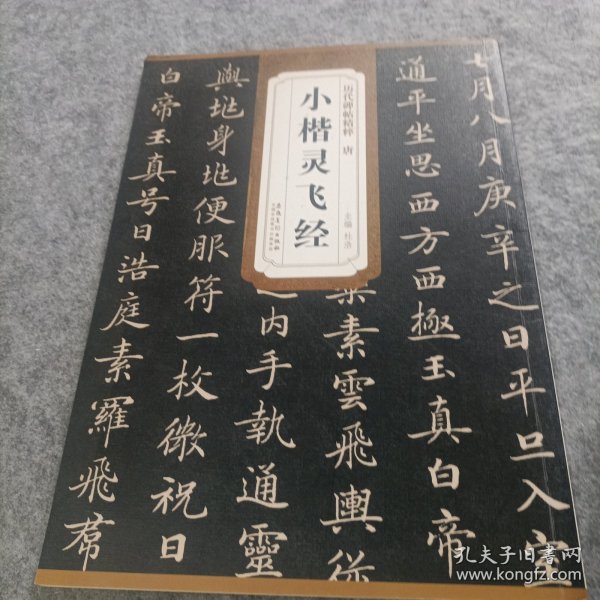 历代碑帖精粹 唐
小楷灵飞经
主编 杜浩
安徽美术出版社
七月八月庚辛之日平旦入室
通平坐思西方西極玉真白帝
素雲飛輿從
内手執通靈
與虵身虵便服符一枚微祝日
白帝玉真号日浩庭素羅飛帬
孔夫子旧书网
www.kongfz.com